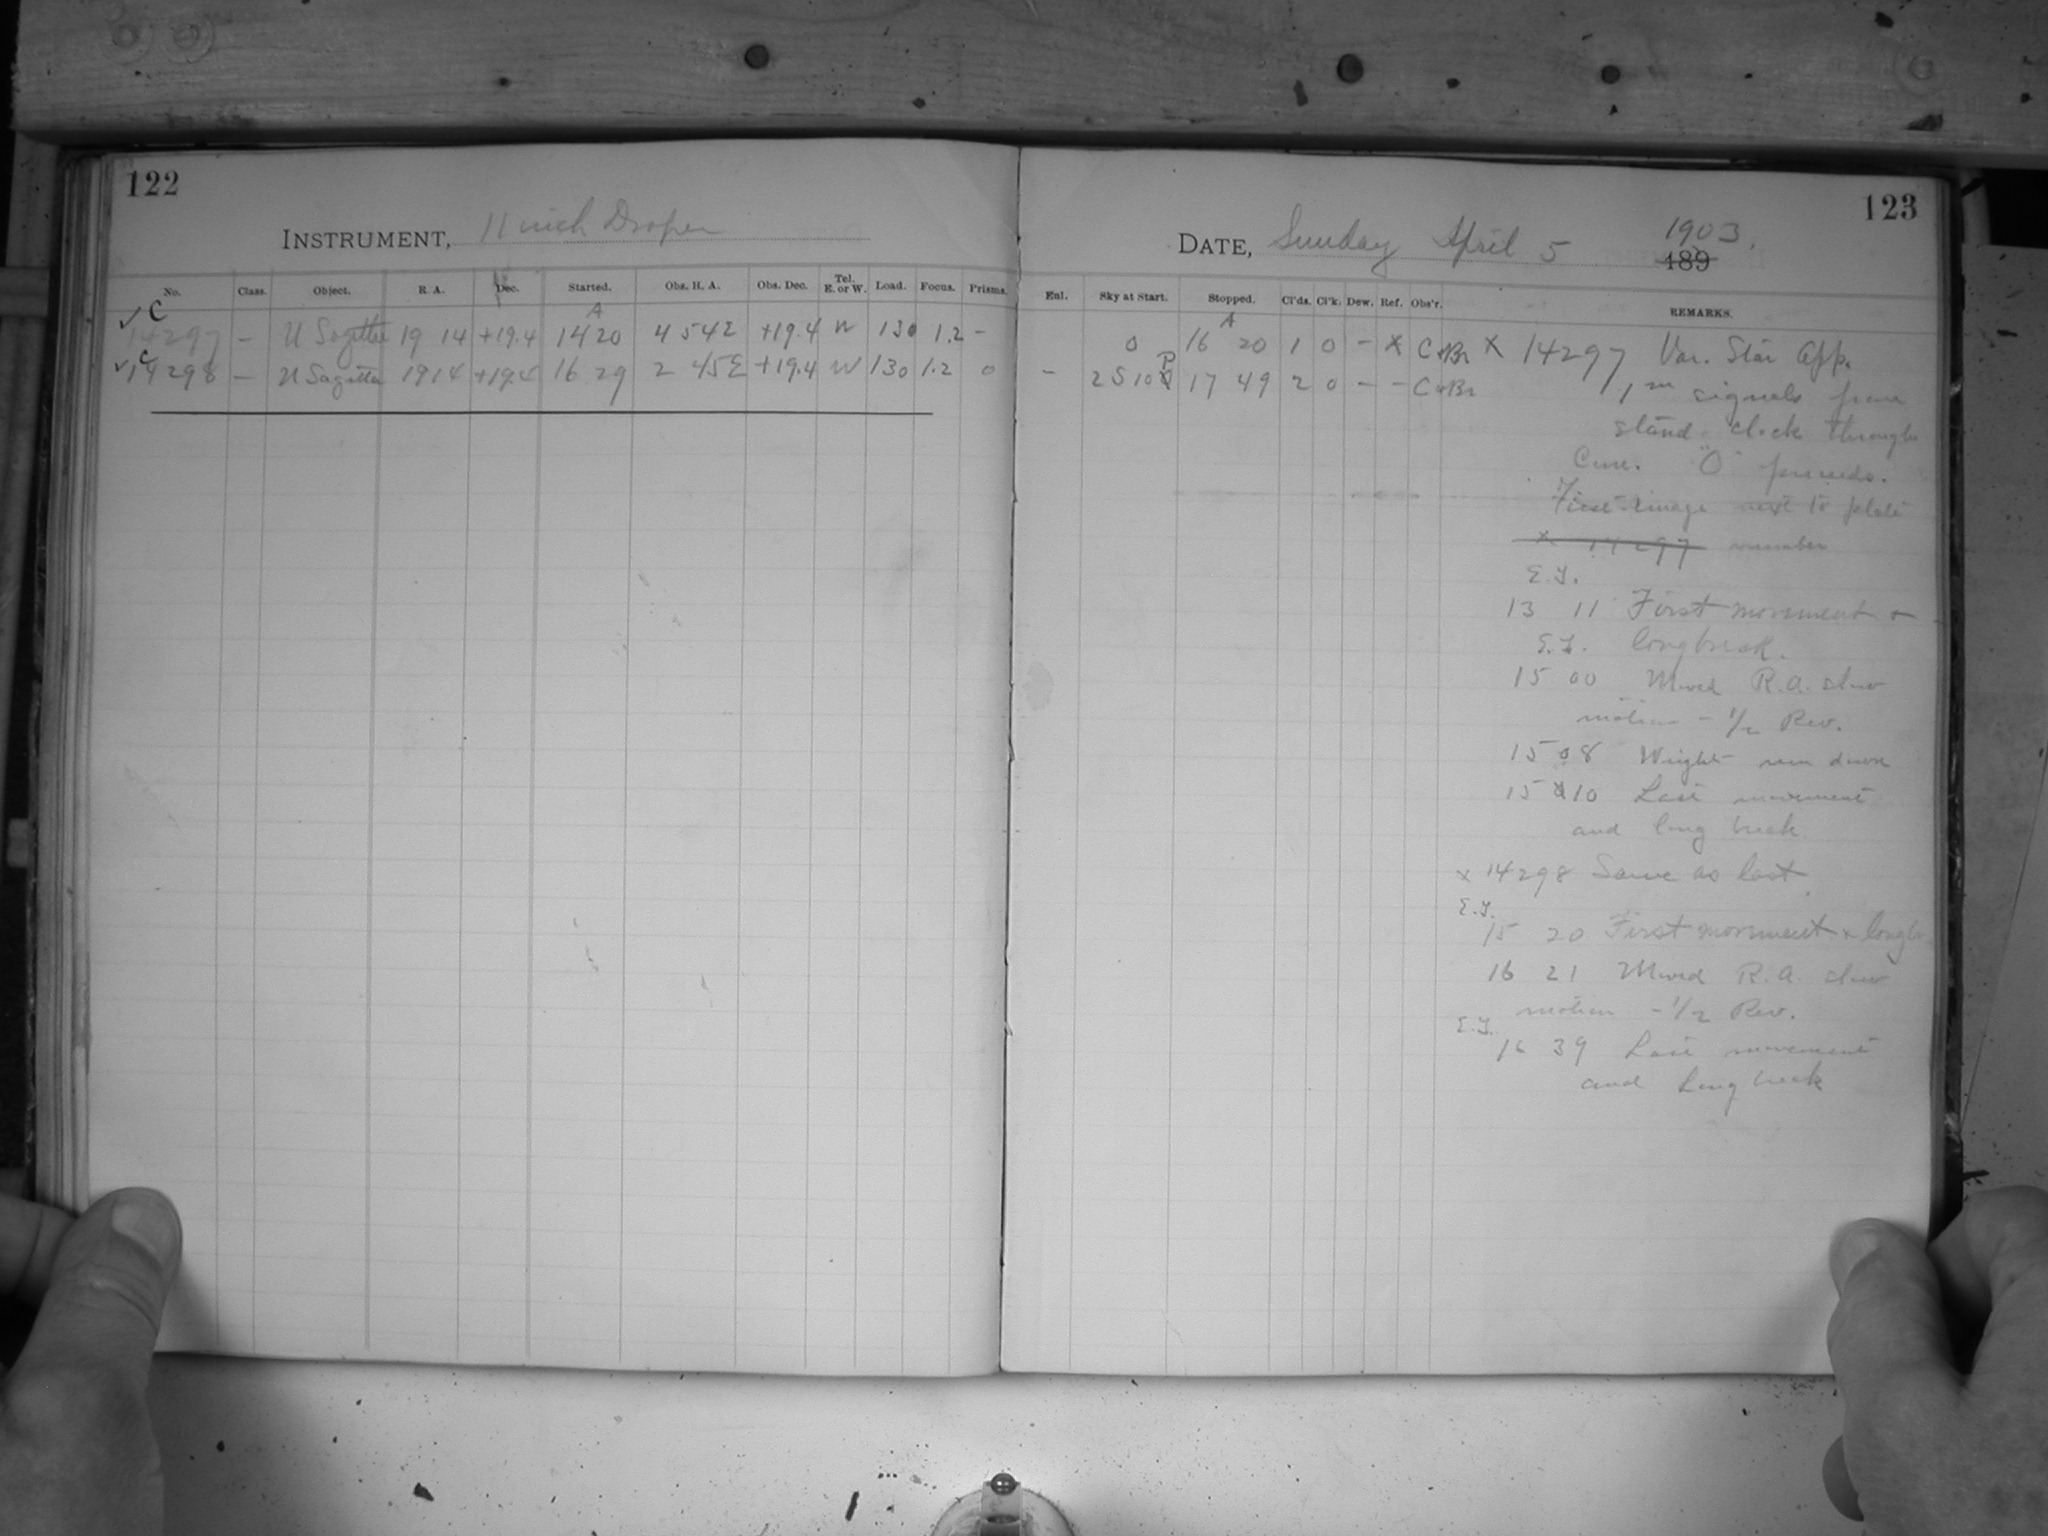 122
INSTRUMENT, 11 inch Draper
No. Class. Object. R. A. Dec. Started. Obs. H. A. Obs. Dec. Tel. E. or W. Load. Focus. Prisms.
✓ C A
14297 – U Sagittae 19 14 +19.4 14 20 4 54 E +19.4 W 130 1.2 –
✓ C
14298 – U Sagittae 19 14 +19.4 16 29 2 45 E +19.4 W 130 1.2 0
123
DATE, Sunday April 5 1903.
189
Enl. Sky at Start. Stopped. Cl'ds. Cl'k. Dew. Ref. Obs'r. REMARKS.
A
0 16 20 1 0 – x C+Br x 14297 Var. Star App.
P
– 2 S 10 17 49 2 0 – – C+Br
1m signals from
stand. clock through
"O"
First image next to plate
x 14297 number
E.T.
13 11 First movement +
E.T. long break.
15 00 Moved R.A. slow
motion – 1/2 Rev.
15 08 Weight run down
15 10 Last movement
and long break
x 14298 Same as last.
E.T.
15 20 First movement + long
16 21 Moved R.A. slow
motion – 1/2 Rev.
E.T.
16 39 Last movement
and long break